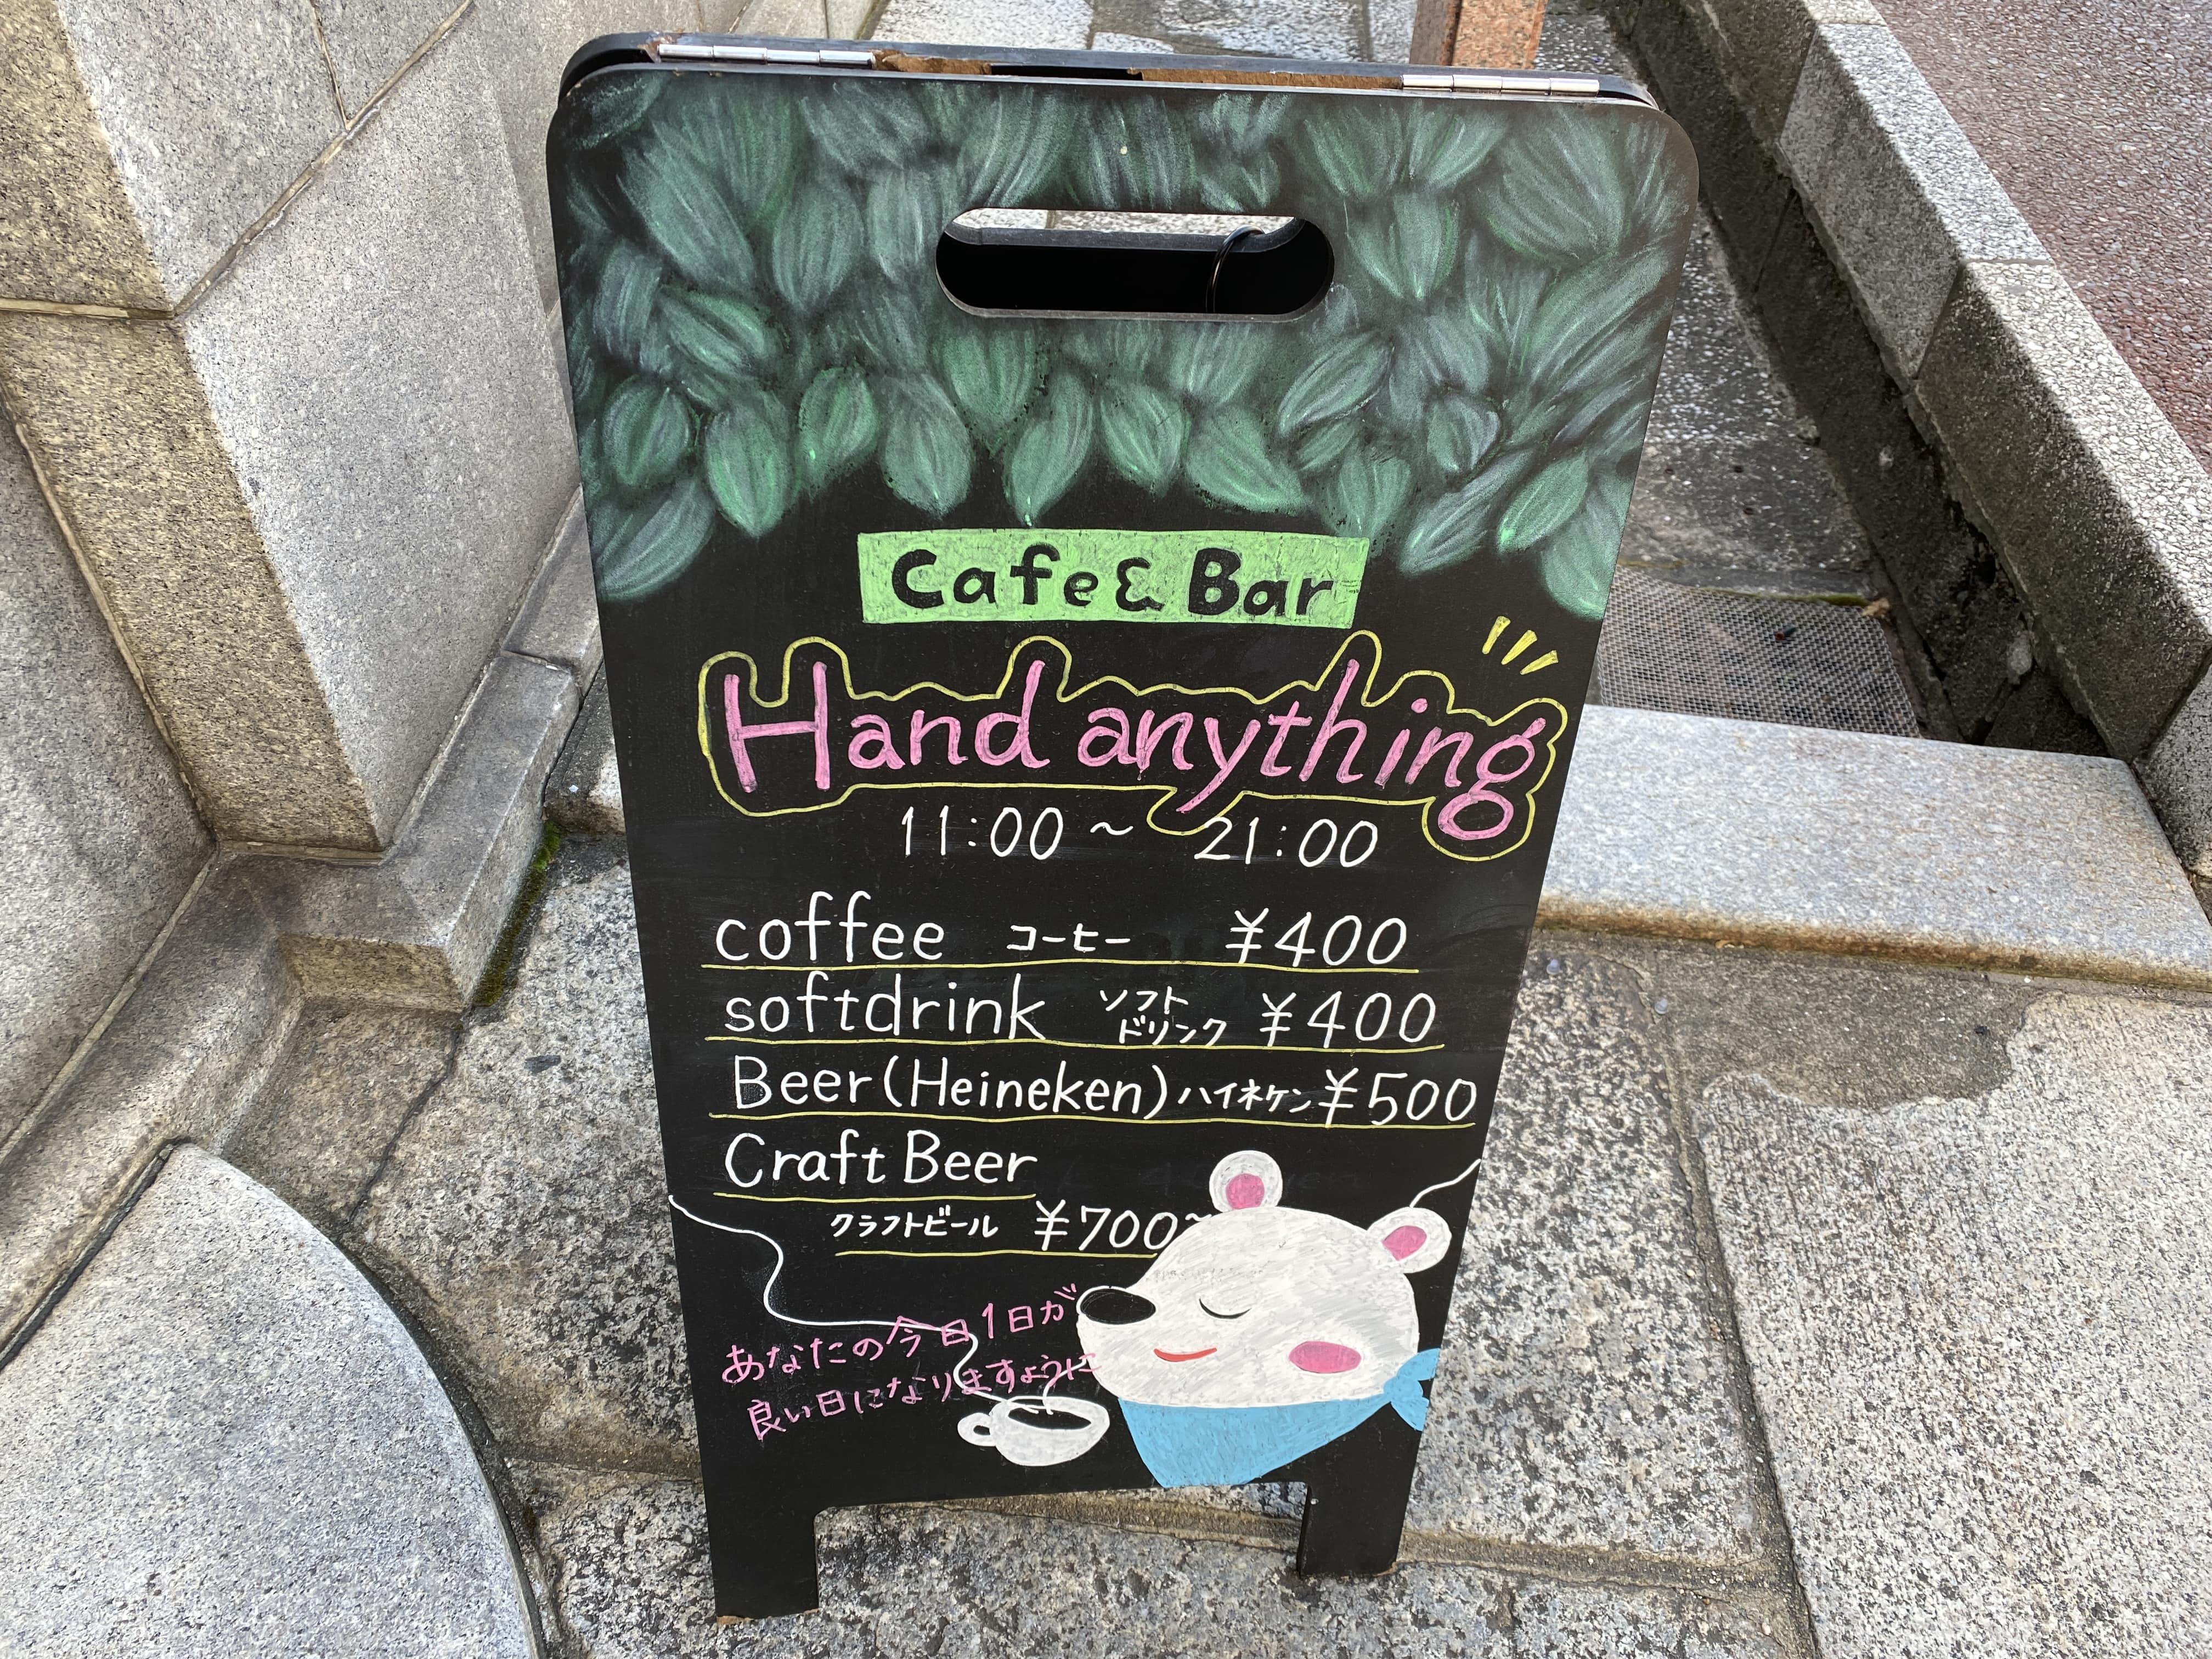 Cafe & Bar
Hand anything
11:00 ~ 21:00
coffee コーヒー ¥400
softdrink ソフト
ドリンク ¥400
Beer (Heineken) ハイネケン ¥500
Craft Beer
クラフトビール ¥700~
あなたの今日1日が
良い日になりますように